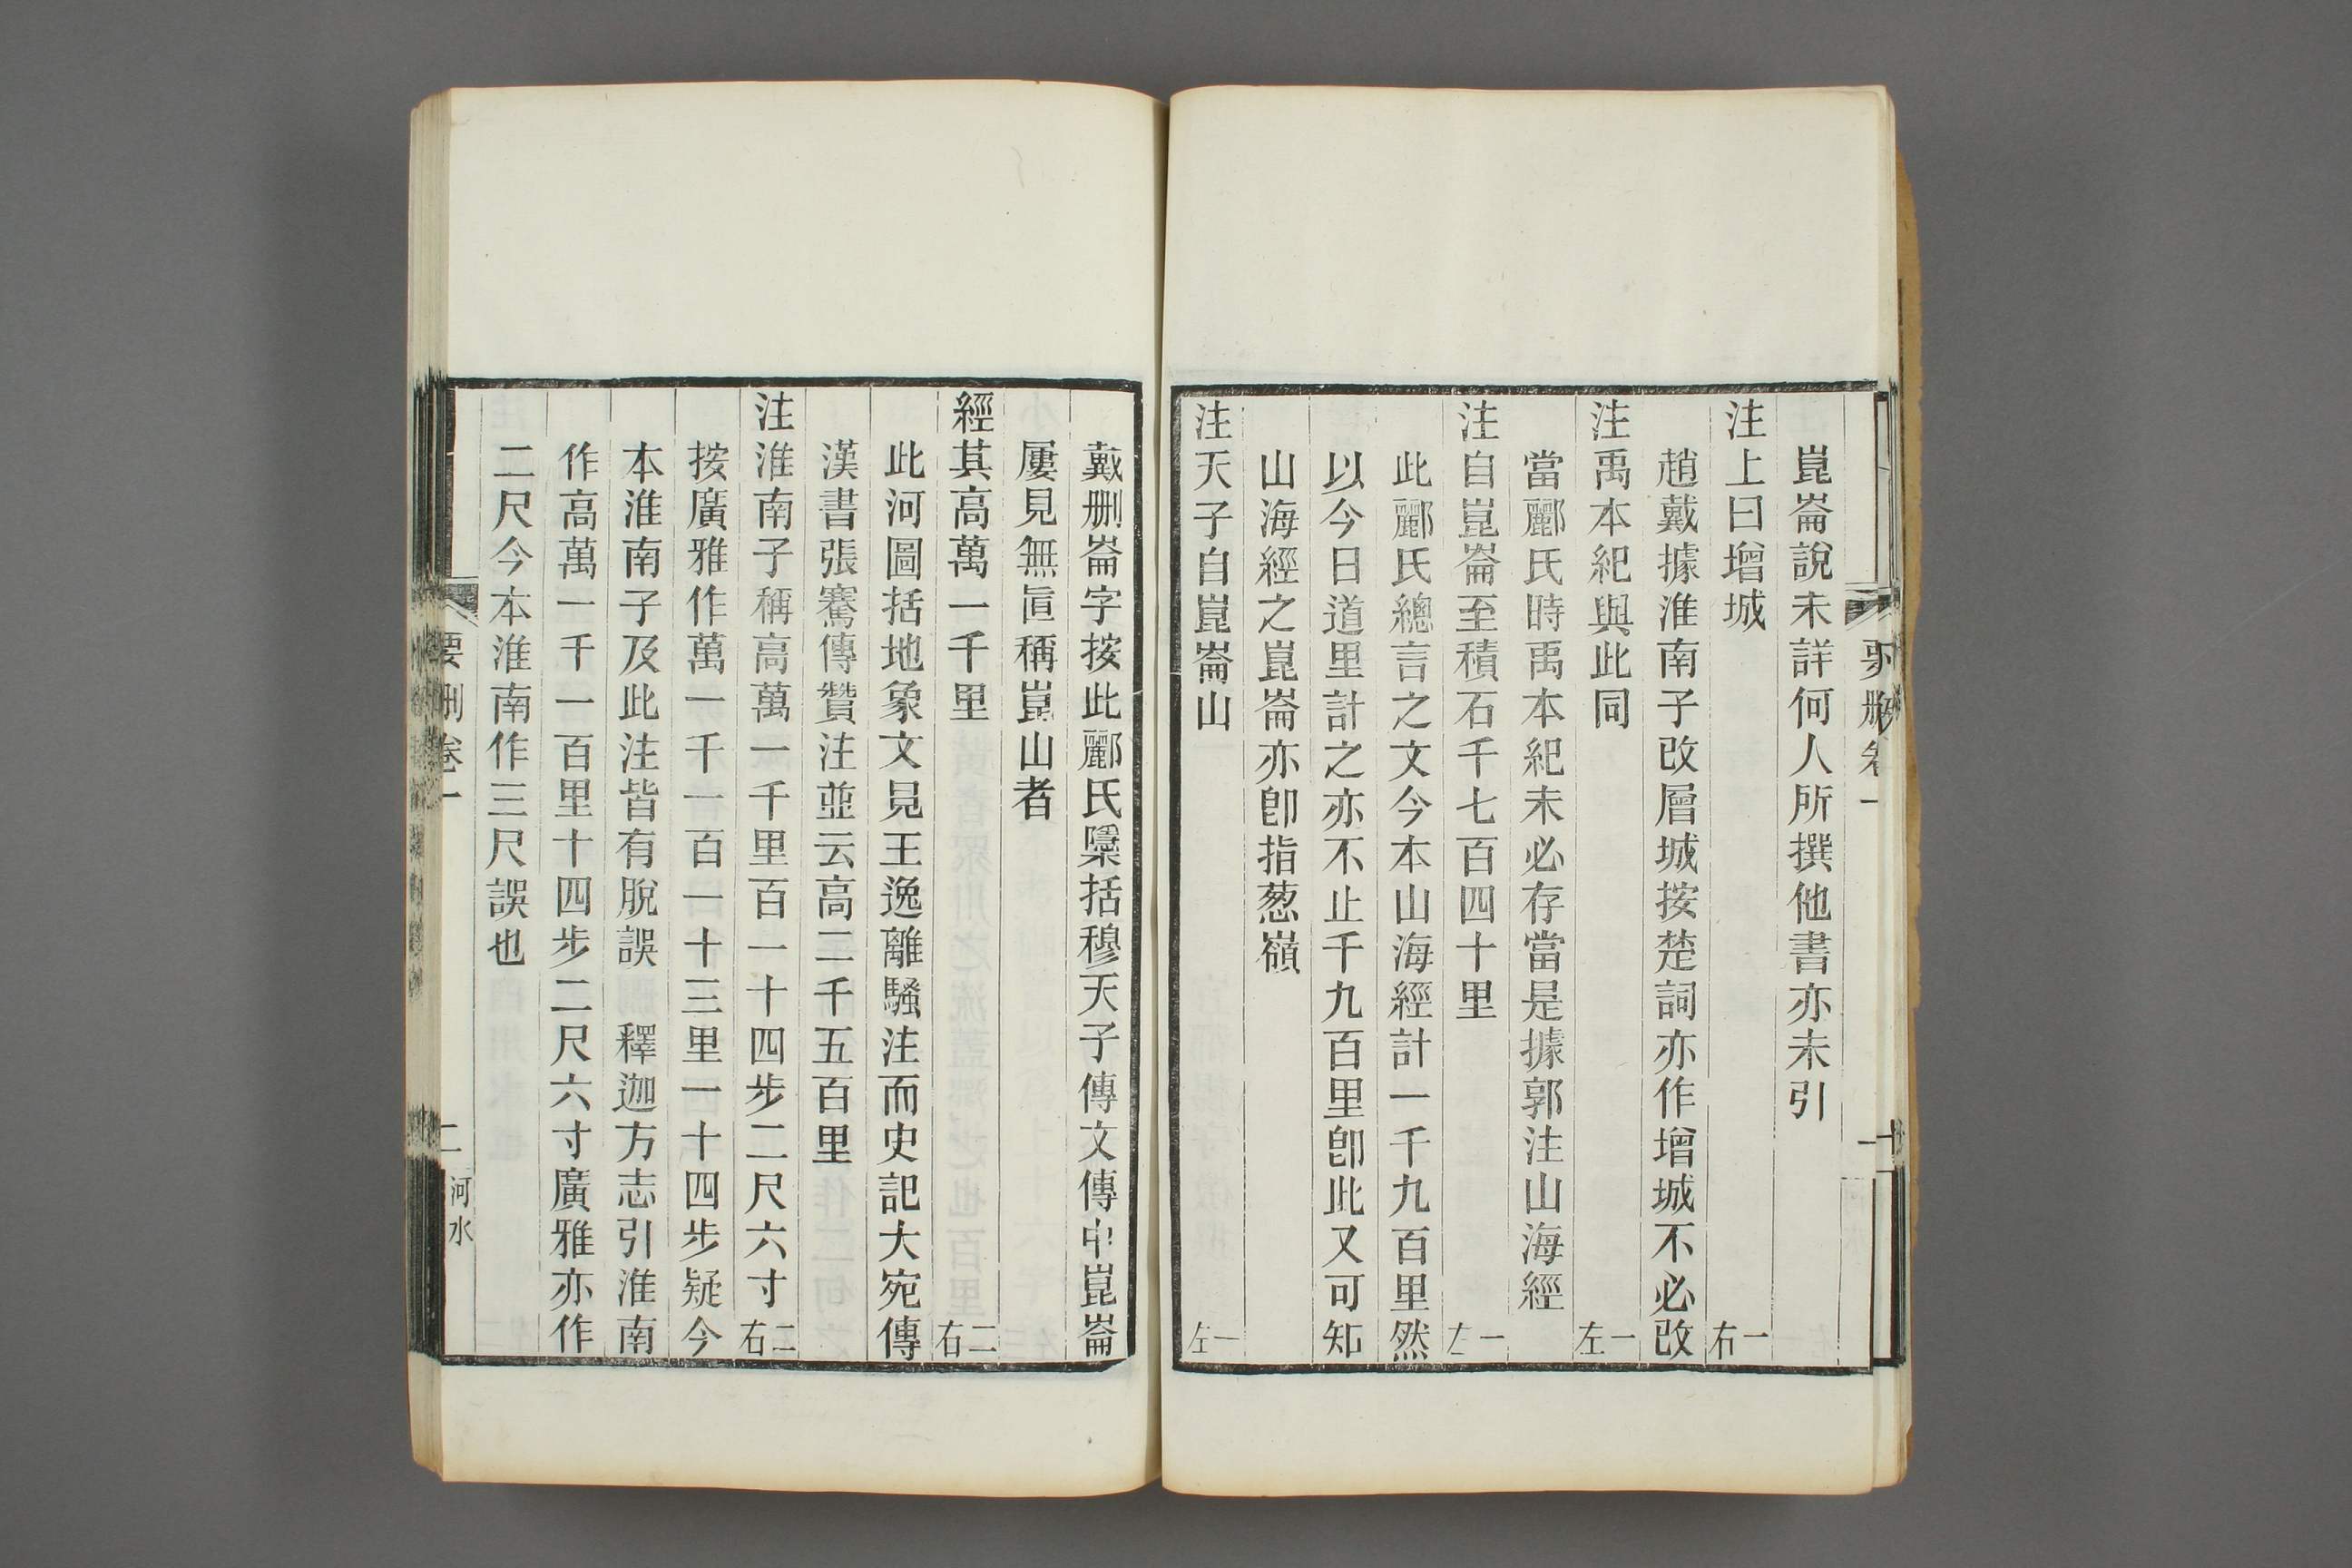 崑崙說未詳何人所撰他書亦未引
注上曰增城 一右
趙戴據淮南子改層城按楚詞亦作增城不必改
注禹本紀與此同 一左
當酈氏時禹本紀未必存當是據郭注山海經
注自崑崙至積石千七百四十里 一左
此酈氏總言之文今本山海經計一千九百里然
以今日道里計之亦不止千九百里卽此又可知
山海經之崑崙亦卽指葱嶺
注天子自崑崙山 一左
戴刪崙字按此酈氏檃括穆天子傳文傳中崑崙
屢見無𥄂稱崑山者
經其高萬一千里 二右
此河圖括地象文見王逸離騷注而史記大宛傳
漢書張騫傳贊注並云高二千五百里
注淮南子稱高萬一千里百一十四步二尺六寸 二右
按廣雅作萬一千一百一十三里一十四步疑今
本淮南子及此注皆有脫誤 釋迦方志引淮南
作高萬一千一百里十四步二尺六寸廣雅亦作
二尺今本淮南作三尺誤也
要刪卷一 二 河水